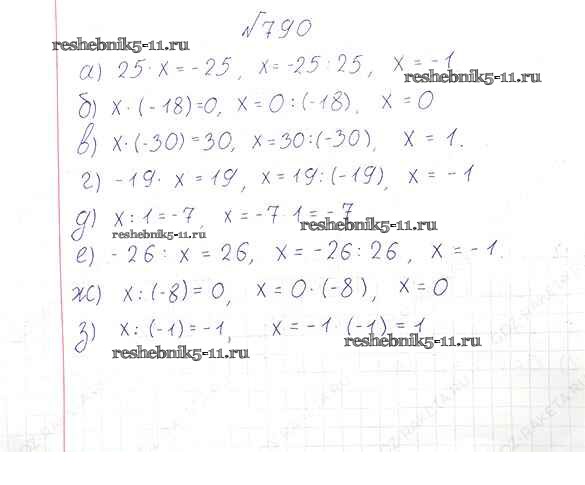 №790
reshebnik5-11.ru
а) 25 · x = -25, x = -25 : 25, x = -1
reshebnik5-11.ru
б) x · (-18) = 0, x = 0 : (-18), x = 0
в) x · (-30) = 30, x = 30 : (-30), x = 1.
г) -19 · x = 19, x = 19 : (-19), x = -1
д) x : 1 = -7, x = -7 · 1 = -7
reshebnik5-11.ru
reshebnik5-11.ru
е) -26 : x = 26, x = -26 : 26, x = -1.
ж) x : (-8) = 0, x = 0 · (-8), x = 0
з) x : (-1) = -1, x = -1 · (-1) = 1
reshebnik5-11.ru
reshebnik5-11.ru